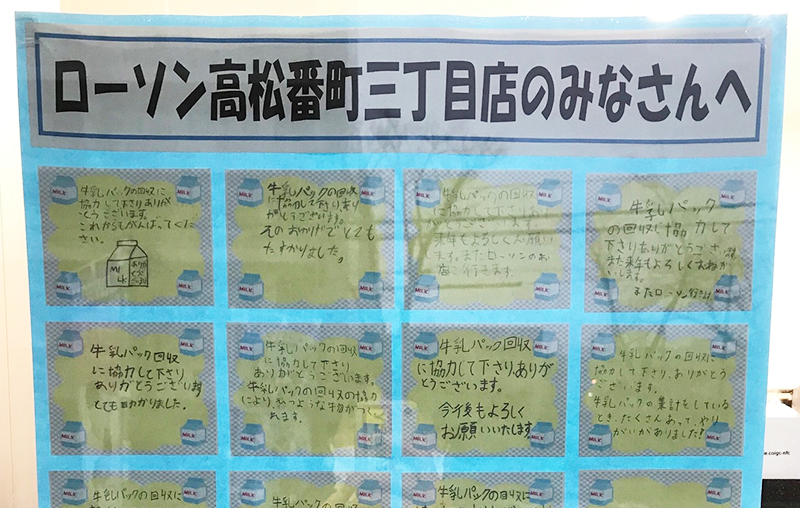 ローソン高松番町三丁目店のみなさんへ
牛乳パックの回収に
協力して下さりありが
とうございます。
これからもがんばってくだ
さい。
MI
LK
牛乳パックの回収
に協力して下さりあり
がとうございます。
そのおかげでとても
たすかりました。
牛乳パックの回収
に協力して下さりあり
がとうございます。
来年もよろしくお願い
します。またローソンのお
店に行きます。
牛乳パック
の回収に協力して
下さりありがとうござ
また来年もよろしくおねが
いします。
またローソン行き
牛乳パック回収
に協力して下さり
ありがとうございます
とても助かりました。
牛乳パックの回収
に協力して下さり
ありがとうございます。
牛乳パックの回収の協力
により、
れます。
牛乳パック回収
に協力して下さりありが
とうございます。
今後もよろしく
お願いいたします。
牛乳パックの回収に
協力して下さり、ありがとう
ございます。
牛乳パックの集計をしている
とき、たくさんあって、やり
がいがありました!
牛乳パックの回収に
牛乳パックの回収
牛乳パックの回収に
MILK